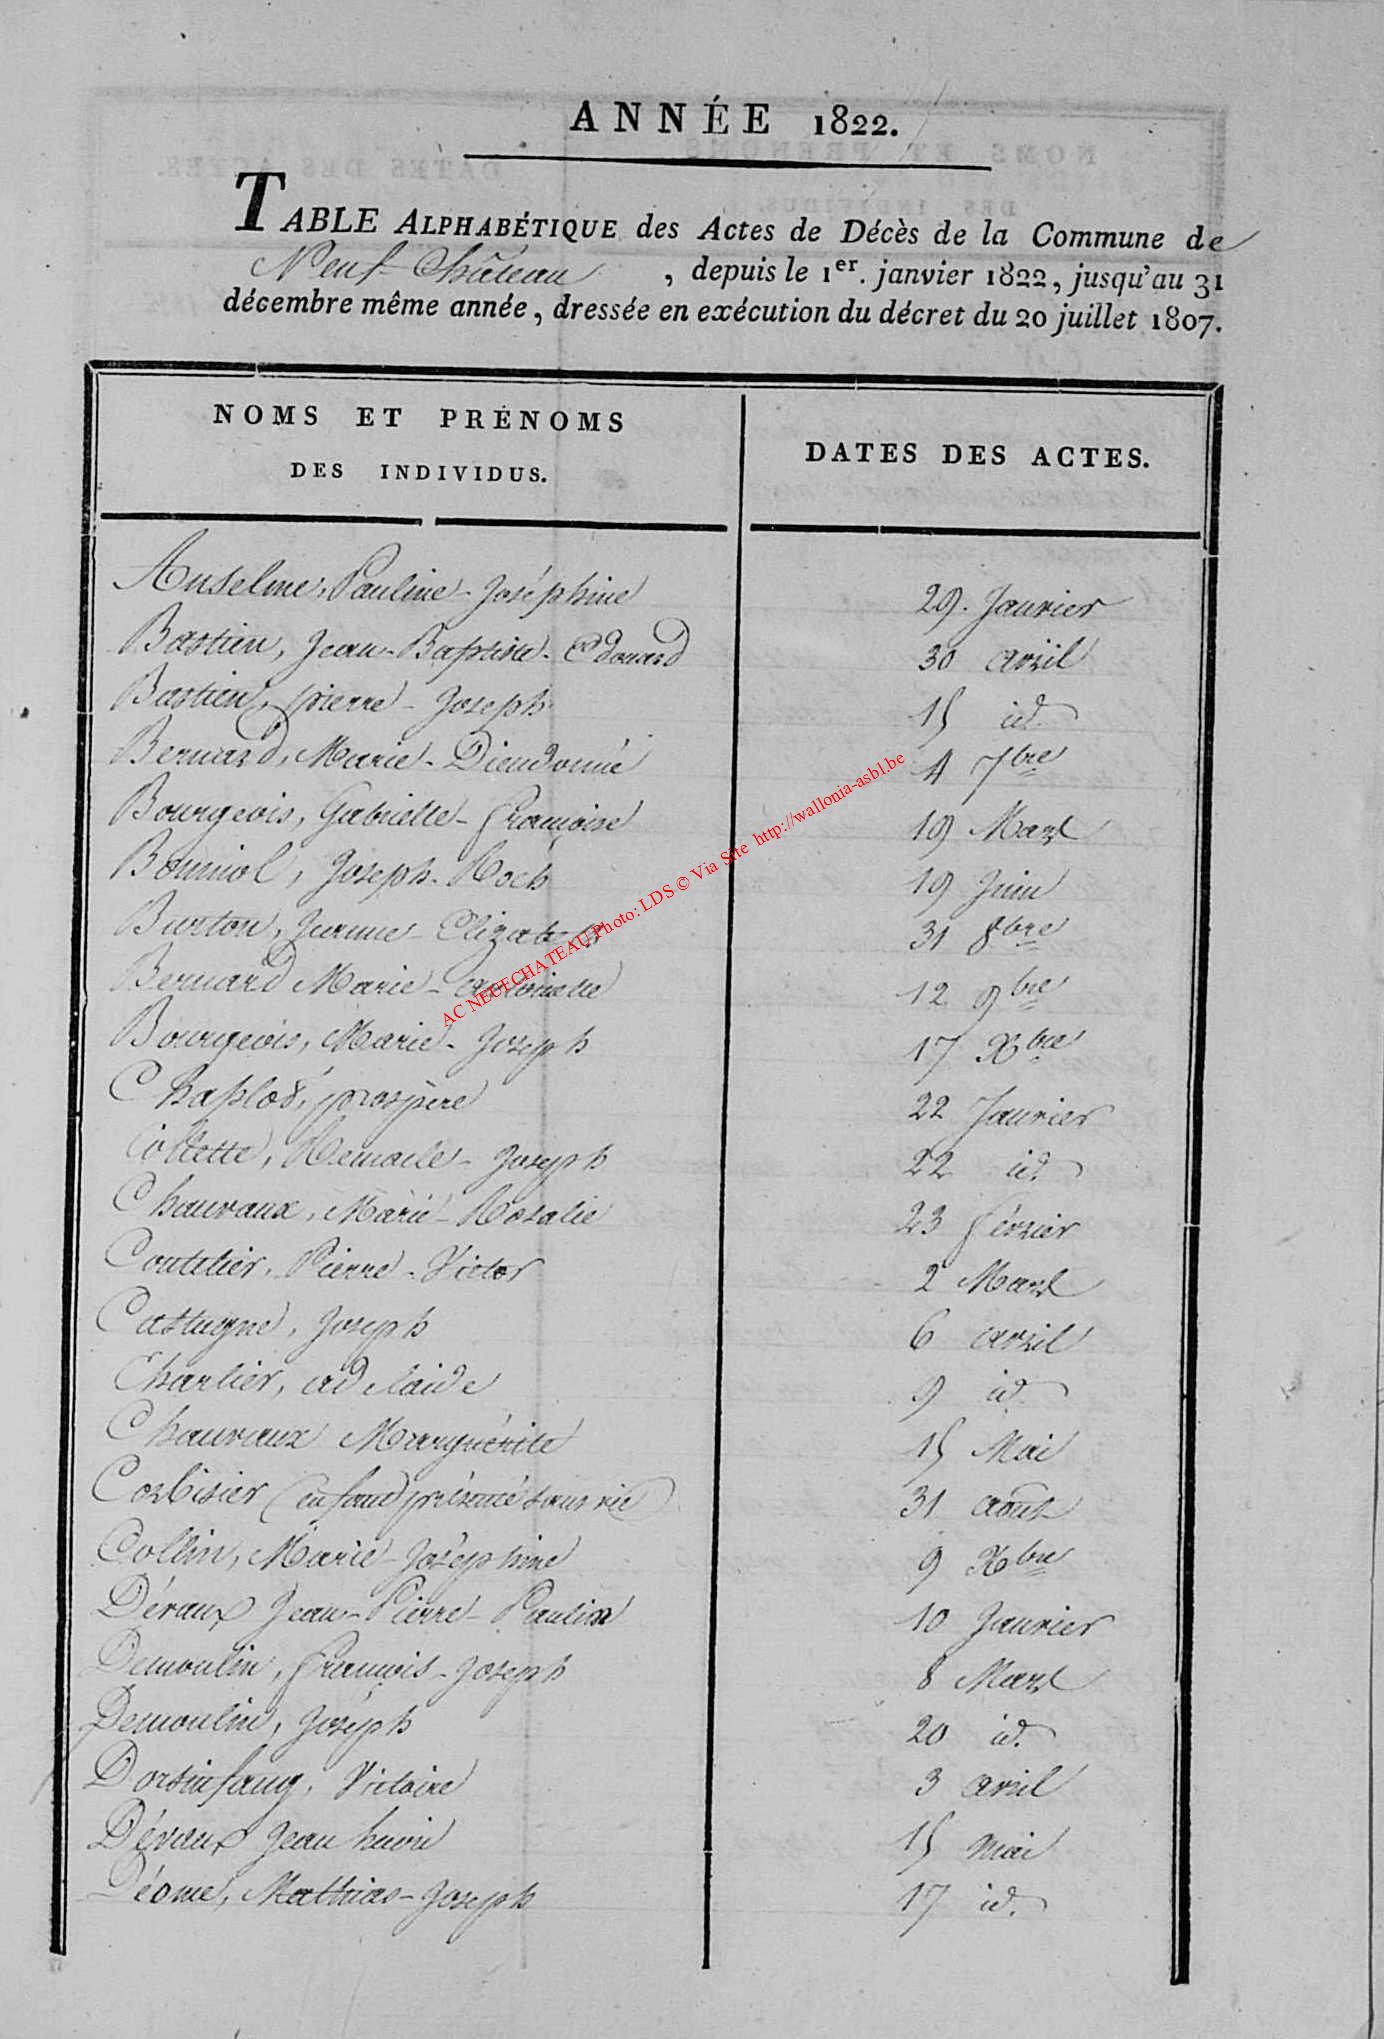 ANNÉE 1822.
TABLE ALPHABÉTIQUE des Actes de Décès de la Commune de
Neuf-Château, depuis le 1er. janvier 1822, jusqu'au 31
décembre même année, dressée en exécution du décret du 20 juillet 1807.
NOMS ET PRÉNOMS
DES INDIVIDUS.
DATES DES ACTES.
Anselme, Pauline-Joséphine 29. Janvier
Bastien, Jean-Baptiste-Edouard 30 avril
Bastien, pierre-Joseph 15 id.
Bernard, Marie-Dieudonné 4 7bre
Bourgeois, Gabrielle-Françoise 19 Mars
Joseph-Roch 19 Juin
Burton, Jeanne-Elizabeth 31 8bre
Bernard Marie-antoinette 12 9bre
Bourgeois, Marie-Joseph 17 Xbre
prospère 22 Janvier
Collette, Remacle-Joseph 22 id.
Chauvaux, Marie-Rosalie 23 février
Coutelier, Pierre-Victor 2 Mars
Castagne, Joseph 6 avril
Charlier, adelaide 9 id.
Chauvaux Marguérite 15 Mai
Corbisier (enfant présenté sans vie) 31 août
Collin, Marie-Joséphine 9 Xbre
Dévaux Jean-Pierre-Paulin 10 Janvier
Demoulin, François-Joseph 8 Mars
Demoulin, Joseph 20 id.
Dorsinfang, Victoire 3 avril
Dévaux Jean henri 15 mai
Déome, Mathias-Joseph 17 id.
AC NEUFCHATEAU Photo: LDS © Via Site http://wallonia-asbl.be